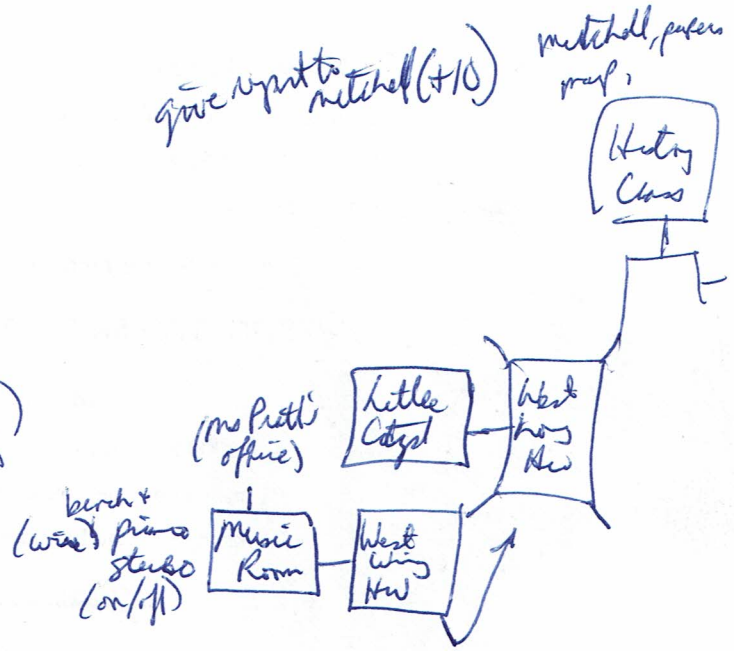 give report to
mitchell (+10)
mitchell, papers
map,
History
Class
West
Wing
HW
Little
(ms Pratt's
office)
bench +
(wire) piano
stereo
(on/off)
Music
Room
West
Wing
HW